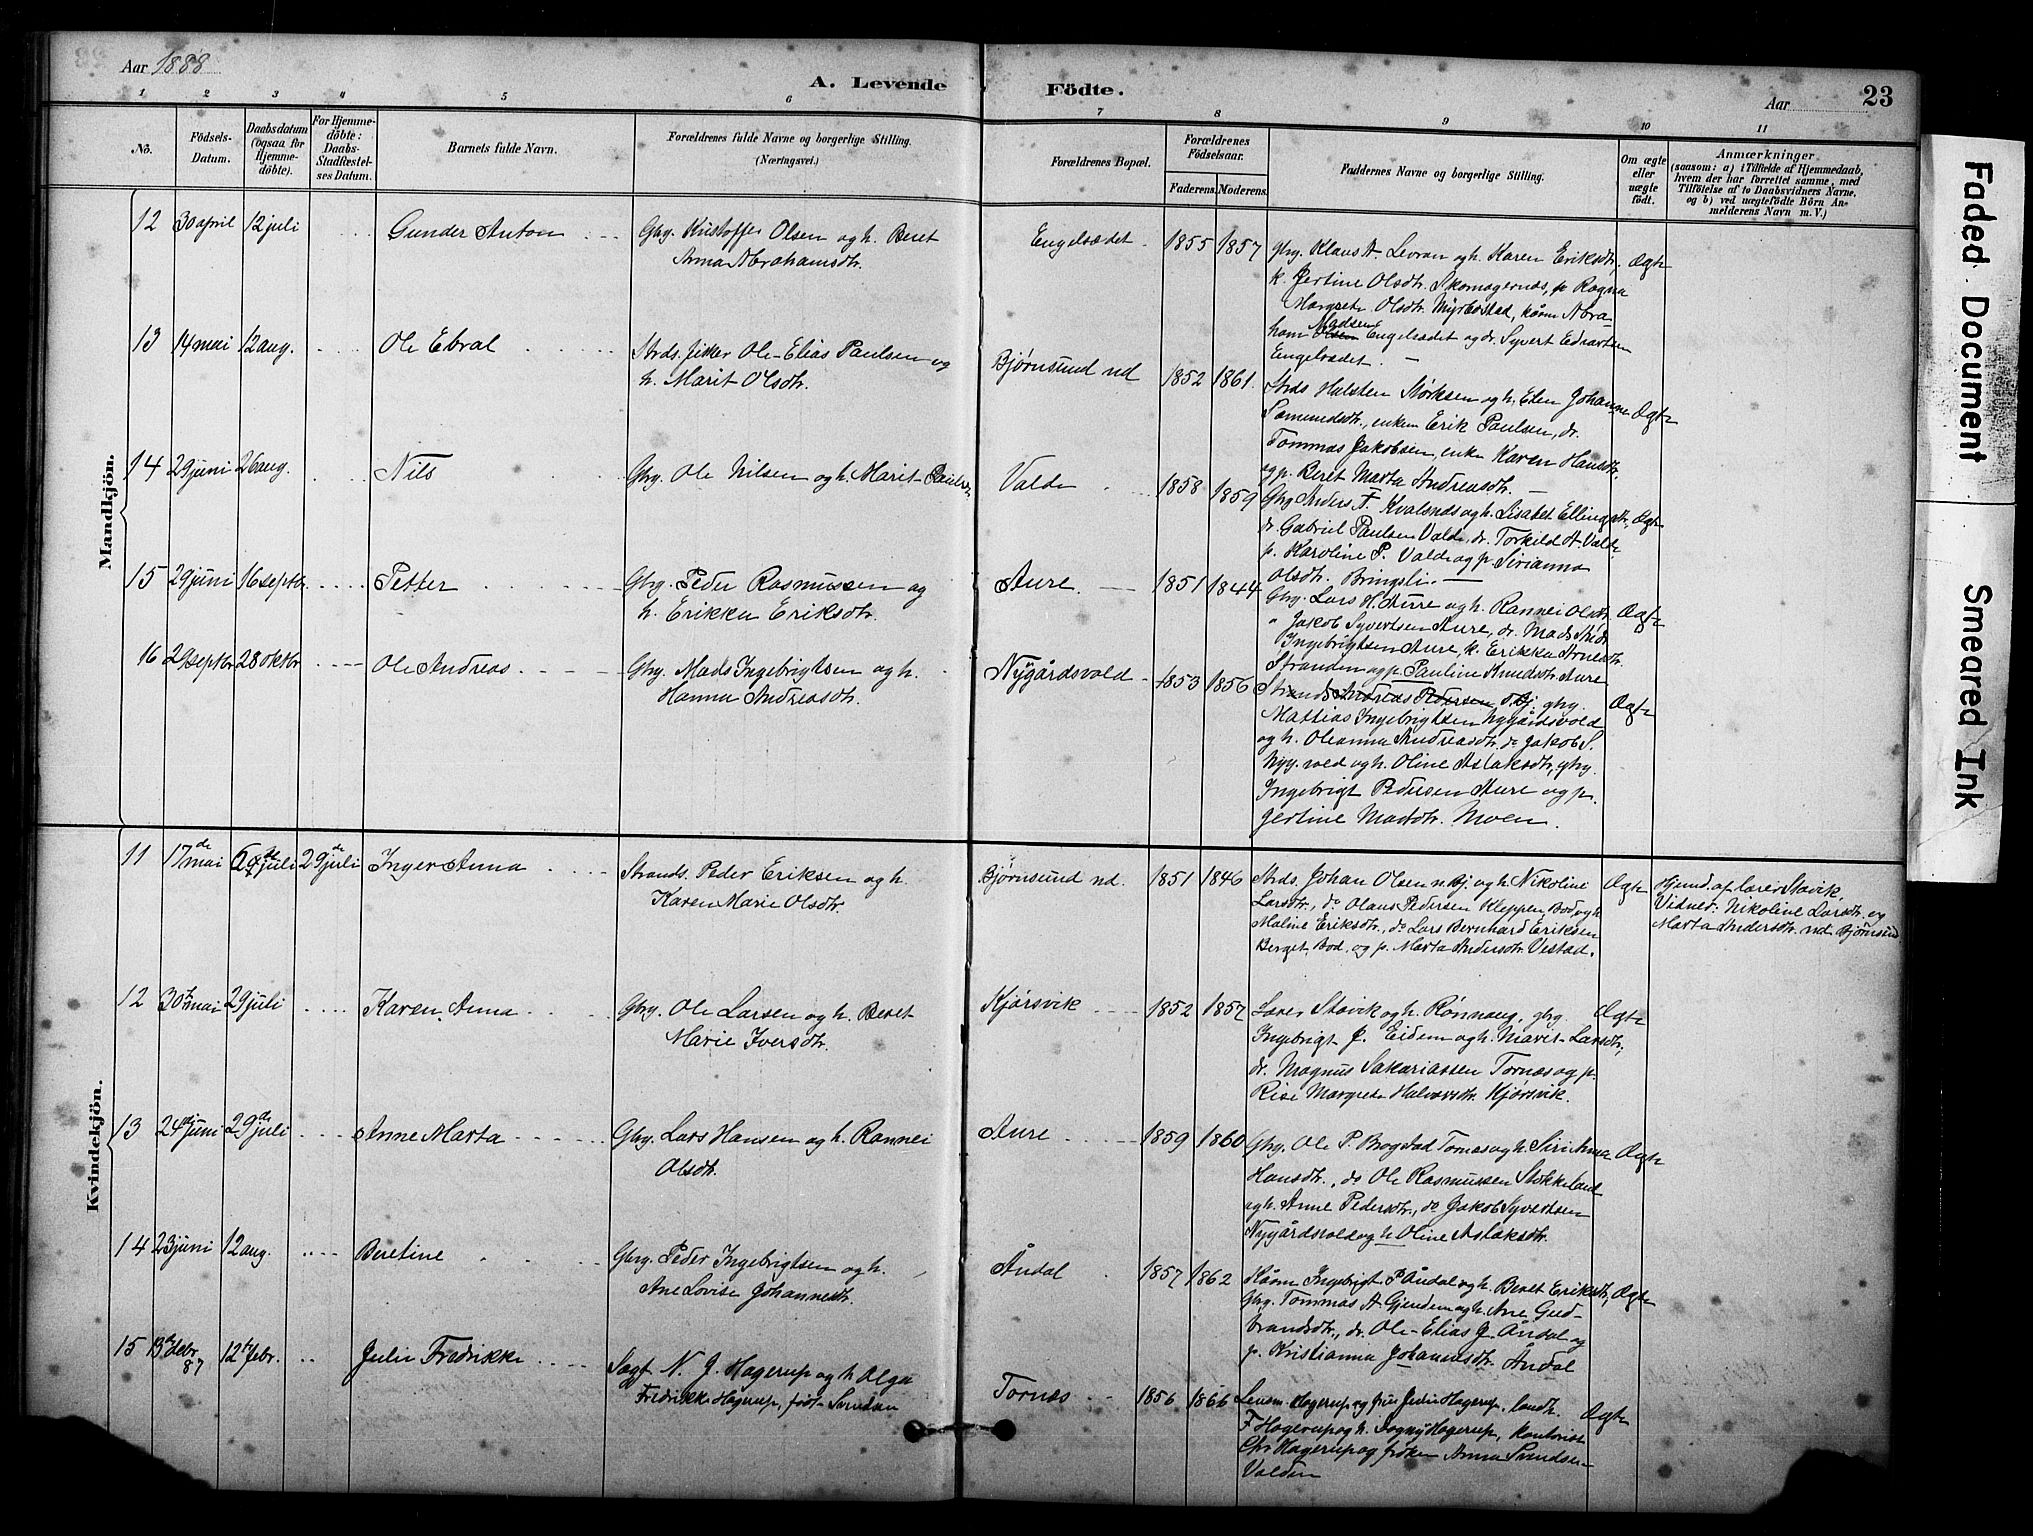 Aar 1888
A. Levende
Födte.
Aar
23
1 2 3 4 5 6 7 8 9 10 11
No.
Födsels-
Datum.
Daabsdatum
(ogsaa for
Hjemme-
döbte).
For Hjemme-
döbte:
Daabs-
Stadfæstel-
ses Datum.
Barnets fulde Navn.
Forældrenes fulde Navne og borgerlige Stilling.
(Næringsvei.)
Forældrenes Bopæl.
Forældrenes
Födselsaar.
Faderens. Moderens.
Faddernes Navne og borgerlige Stilling.
Om ægte
eller
uægte
født.
Anmærkninger
(saasom: a) i Tilfælde af Hjemmedaab,
hvem der har forrettet samme, med
Tilföielse af to Daabsvidners Navne,
og b) ved uægtefödte Börn An-
melderens Navn m. V.)
Mandkjön.
12 30 april 12 juli Gunder Anton Gbrg. Kristoffer Olsen og h. Beret
Anna Abrahamsdtr.
Engelsædet. 1855 1857
Gbrg. Klaus A. Levran og h. Karen Eriksdtr., Ægte
k. Jertine Olsdtr. Skomagernæs, p Ragna
Margrete Olsdtr. Myrbostad, kårm Abra-
ham Madsen Engelsædet og dr. Syvert Edvartsen
Engelsædet. —
13 14 mai 12 aug. Ole Ebral Strds. fisker Ole-Elias Paulsen og
h. Marit Olsdtr.
Bjørnsund nd 1852 1861.
Strds Halsten Størksen og h. Elen Johanne Ægte
Samundsdtr., enkem Erik Paulsen, dr.
Tommas Jakobsen, enke Karen Hansdtr.
og p. Beret Marta Andreasdtr. —
14 29 juni 26 aug. Nils Gbrg. Ole Nilsen og h. Marit Paulsdtr.
Valde 1858 1859
Gbrg Anders F. Kvalsnds og h. Lisabet Ellingsdtr., Ægte
dr. Gabriel Paulsen Valde, dr. Torkild A. Valde
p. Karoline P. Valde og p Sirianna
Olsdtr. Bringsli. —
15 29 juni 16 septbr. Petter Gbrg. Peder Rasmussen og
h. Erikka Eriksdtr.
Aure. 1851 1844
Gbrg. Lars H. Aure og h. Rannei Olsdtr. Ægte
" Jakob Syvertsen Aure, dr. Mads
Ingebrigtsen Aure, k. Erikka Arnesdtr.
Stranden og p. Pauline Knudsdtr. Aure
16 29 septbr 28 oktbr Ole Andreas Gbrg. Mads Ingebrigtsen og h.
Hanna Andreasdtr.
Nygårdsvold 1853 1856
Strands Andreas Pedersen Bj. gbrg. Ægte
Mattias Ingebrigtsen Nygårdsvold
og h. Oleanna Andreasdtr., do Jakob S.
Nyg.vold og h. Oline Aslaksdtr., gbrg.
Ingebrigt Pedersen Aure og p.
Jertine Madsdtr. Moen.
Kvindekjön.
11 17de mai juli 29de juli Inger Anna Strands. Peder Eriksen og h.
Karen Marie Olsdtr.
Bjørnsund nd. 1851 1846
Strds. Johan Olsen n. Bj. og h. Nikoline Ægte
Larsdtr., do Olaus Pedersen Kleppen Bod og h.
Maline Eriksdtr., do Lars Bernhard Eriksen
Berget, Bod, og p. Marta Andersdtr. Vestad.
Hjmd. af lærer Stavik,
Vidner: Nikoline Larsdtr. og
Marta Andersdtr. nd Bjørnsund
12 30 mai 29 juli Karen Anna Gbrg. Ole Larsen og h. Beret
Marie Iversdtr.
Kjørsvik 1852 1857
Lærer Stavik og h. Rønnaug, gbrg. Ægte
Ingebrigt J. Eidem og h. Marit Larsdtr.,
dr. Magnus Sakariassen Tornæs og p.
Rise Margrete Halvorsdtr. Kjørsvik.
13 24de juni 29de juli Anne Marta Gbrg. Lars Hansen og h. Rannei
Olsdtr.
Aure 1859 1860
Gbrg. Ole P. Brogstad Tornæs og h. Siri Anna Ægte
Hansdtr., do Ole Rasmussen Stokkeland
og h. Anne Pedersdtr., do Jakob Syvertsen
Nygårdsvold og h Oline Aslaksdtr.
14 23 juni 12 aug. Beretine Gbrg. Peder Ingebrigtsen og h.
Ane Lovise Johannesdtr.
Åndal 1857 1862
Kårm Ingebrigt P Åndal og h. Beret Eriksdtr., Ægte
Gbrg. Tommas A Gjendem og h. Ane Gud-
brandsdtr., dr. Ole-Elias J. Åndal og
p. Kristianna Johannesdtr. Åndal
15 13 debr 87 12te febr. Julie Fredrikke Sagf N. J. Hagerup og h Olga
Fredrikke Hagerup, født Svendsen
Tornæs 1856 1866
Lensm. Hagerup og frue Julie Hagerup, landh. Ægte
F Hagerup og h. Dagny Hagerup, kontorist
Chr Hagerup og frøken Anna Svendsen
Valden
Faded Document
Smeared Ink